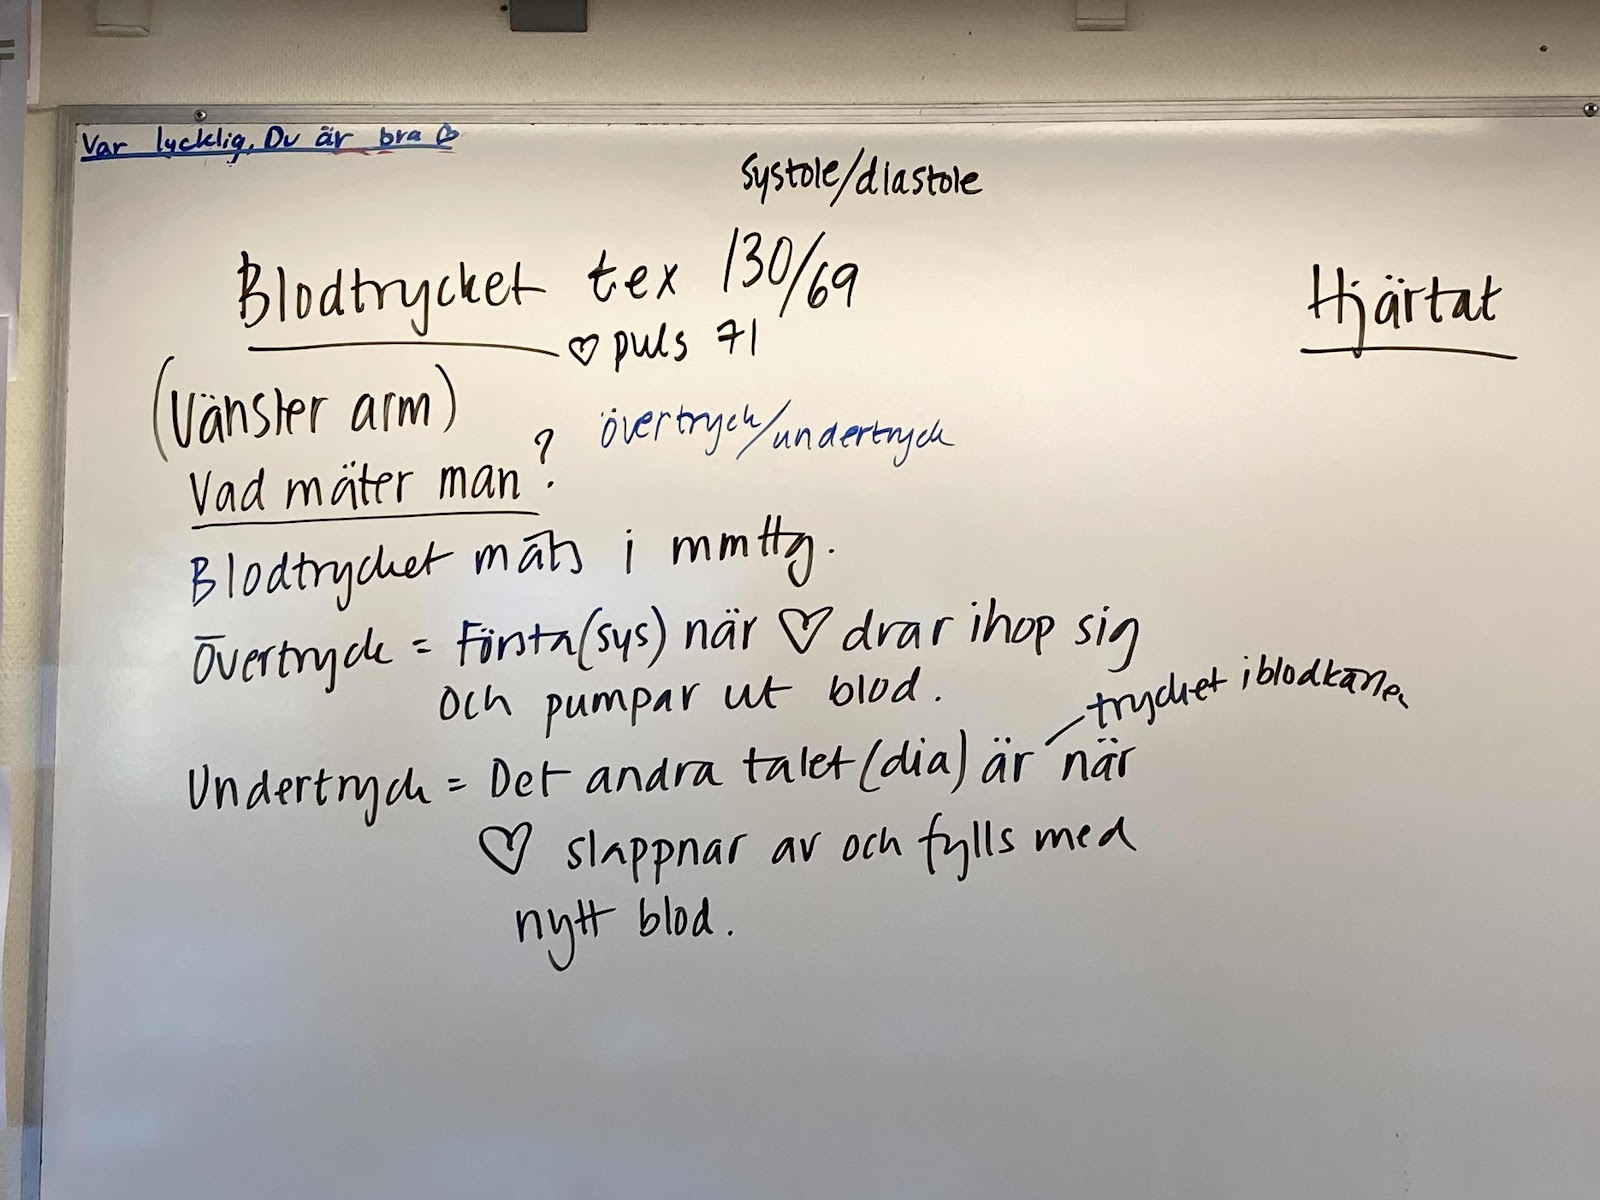 Var lycklig, Du är bra ♡
systole/diastole
Blodtrycket tex 130/69
♡ puls 71
Hjärtat
(Vänster arm)
övertryck/undertryck
Vad mäter man?
Blodtrycket mäts i mmHg.
Övertryck = Första (sys) när ♡ drar ihop sig
och pumpar ut blod.
trycket i blodkärlen
Undertryck = Det andra talet (dia) är när
♡ slappnar av och fylls med
nytt blod.